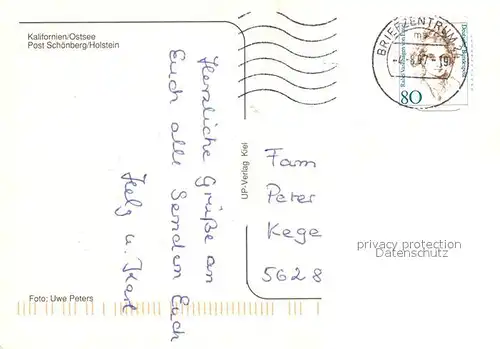 Kalifornien/Ostsee
Post Schönberg/Holstein
Herzliche Grüße an
Euch alle senden Euch
Helg u. Karl
Foto: Uwe Peters
UP-Verlag Kiel
BRIEFZENTRUM 24
Deutsche Bundespost
80
Fam
Peter
Kege
5628
privacy protection
Datenschutz